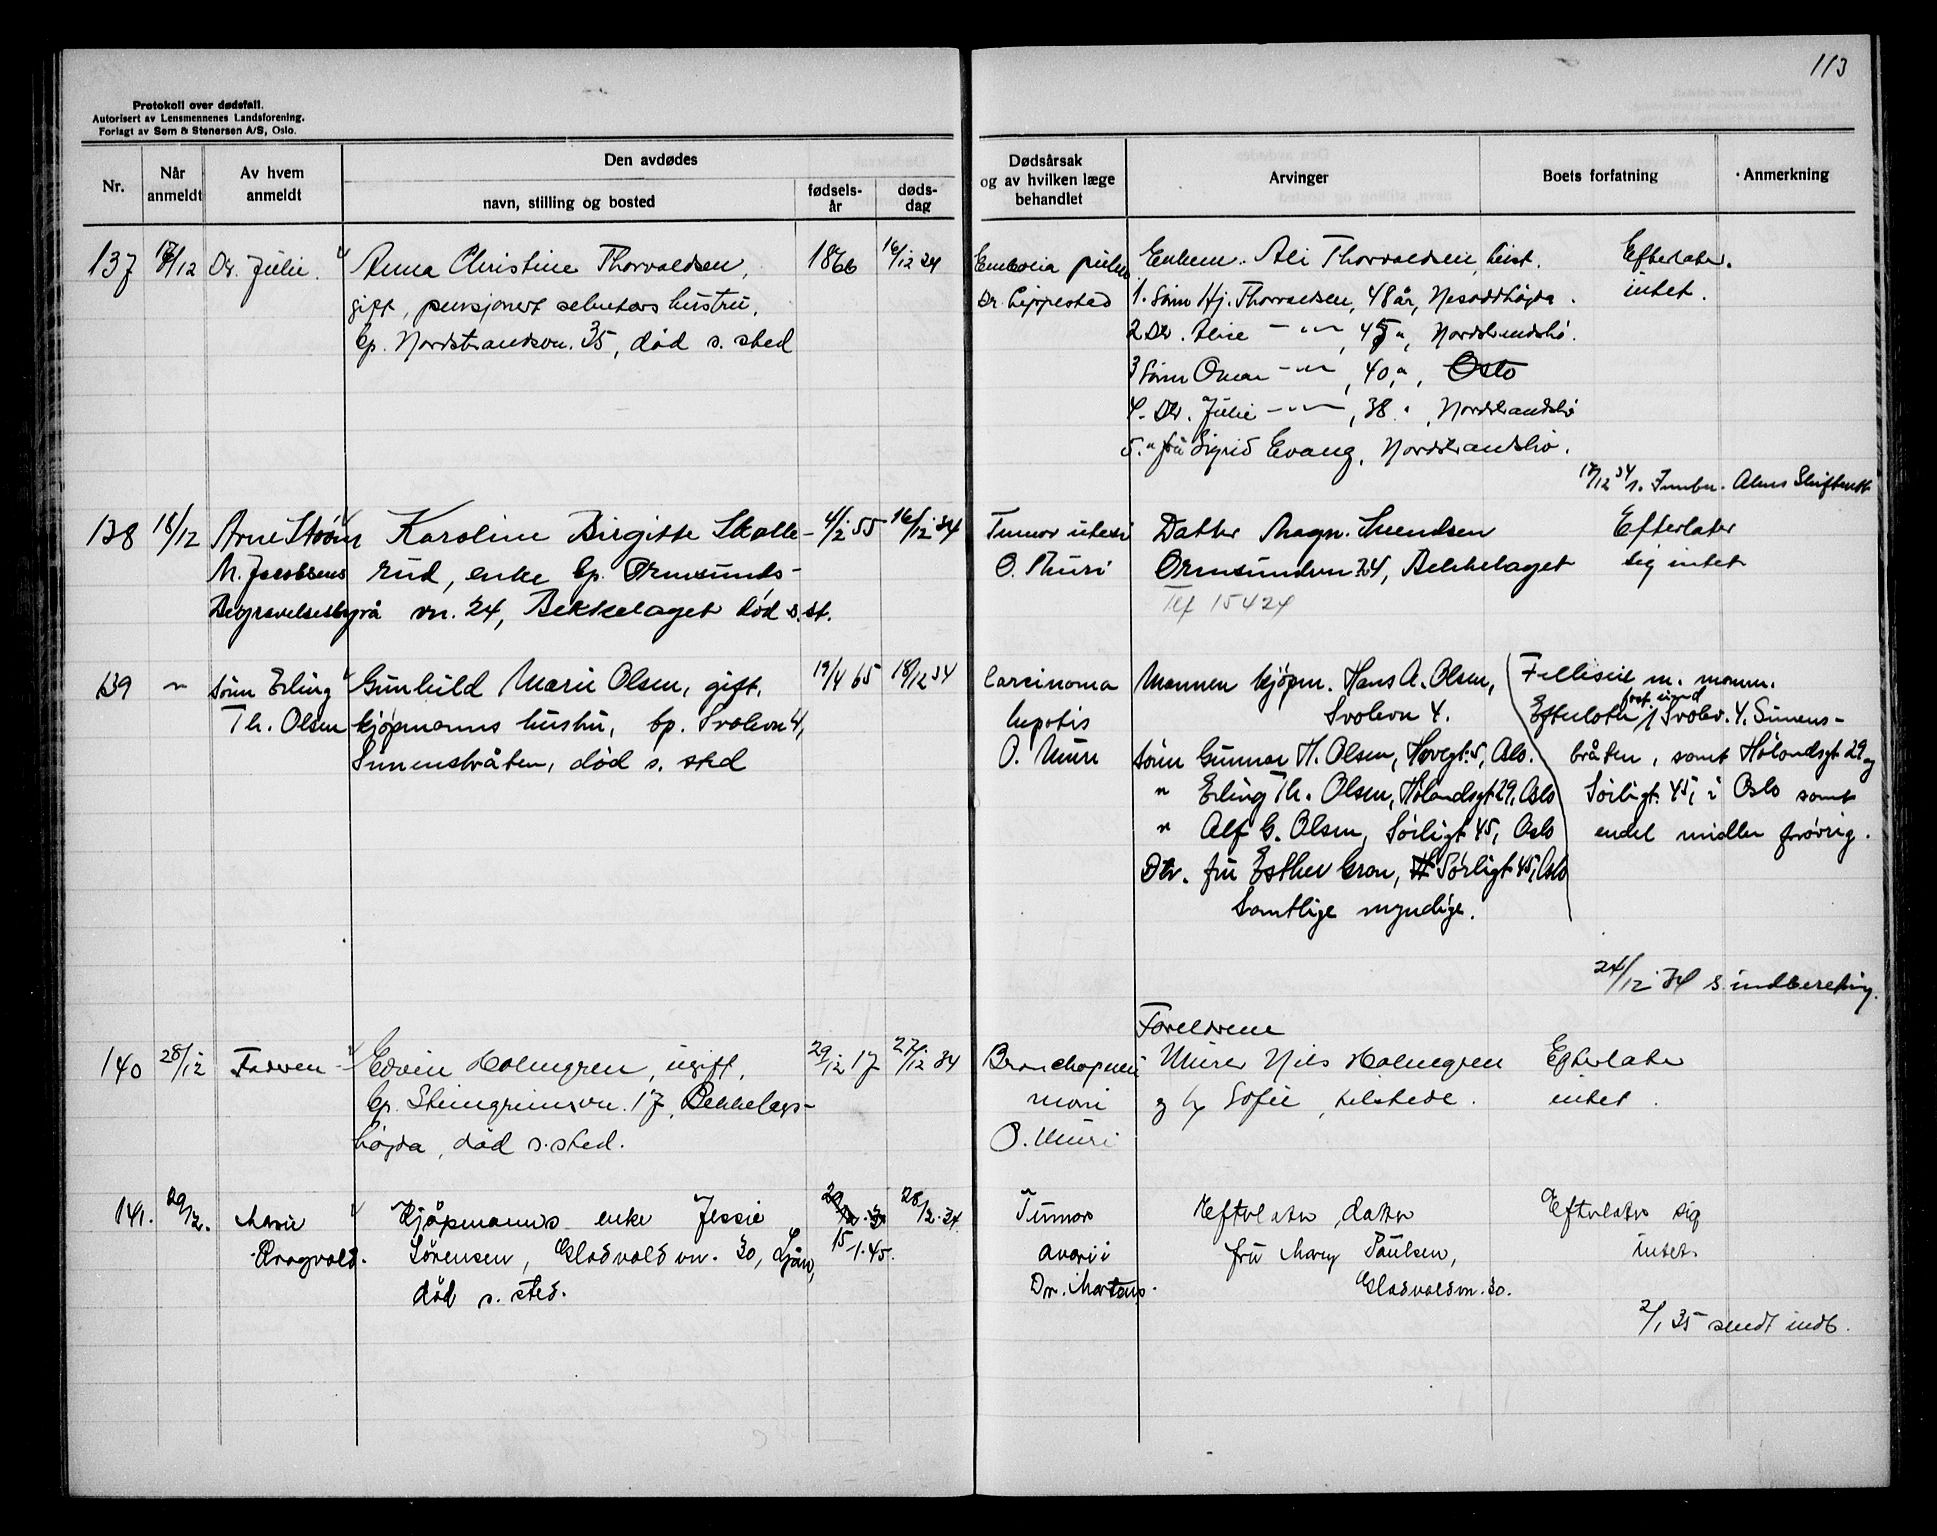 113
Protokoll over dødsfall.
Autorisert av Lensmennenes Landsforening.
Forlagt av Sem & Stenersen A/S, Oslo.
Nr.
Når anmeldt
Av hvem anmeldt
Den avdødes
navn, stilling og bosted
fødsels-år
døds-dag
Dødsårsak og av hvilken læge behandlet
Arvinger
Boets forfatning
Anmerkning
137 17/12 Dtr. Julie. Anna Christine Thorvaldsen, 1866 16/12 34
gift, pensjonert hustru,
bp. Nordstrandsvn. 35, død s. sted
Embolia pulm
Dr. Lippestad
Enkem. Ali Thorvaldsen,
1. Sønn Hj. Thorvaldsen, 48 år, Nesoddhøgda.
2 Dtr. Alice -"- , 45 ", Nordstrandshø.
3 Sønn Omar -"- , 40 ", Oslo
4. Dtr. Julie -"- , 38 ", Nordstrandshø
5. " fru Sigrid Evang, Nordstrandshø.
Efterlater
intet.
17/12 34 s. Innber. Akers Skifterett
138 18/12 Arne Strøm Karoline Birgitte Skolle- 4/12 55 16/12 34
M. Jacobsens rud, enke bp. Ormsunds-
Begravelsesbyrå vn. 24, Bekkelaget død s. st.
Tumor uteri
O. Muri
Datter Magn. Svendsen
Ormsundvn 24, Bekkelaget
Tlf 15424
Efterlater
sig intet
139 " sønn Erling Gunhild Marie Olsen, gift, 19/4 65 18/12 34
Th. Olsen kjøpmanns hustru, bp. Svolvn 4,
Simensbråten, død s. sted
Carcinoma
hepatis
O. Muri
Mannen kjøpm. Hans A. Olsen,
Svolvn 4.
sønn Gunnar H. Olsen, Hovegt. 5, Oslo.
" Erling Th. Olsen, Hølandsgt 29, Oslo
" Alf G. Olsen, Sørligt 45, Oslo
Dtr. fru Esther Gron, Sørligt 45, Oslo
Samtlige myndige.
Felleseie m. mannen.
Efterlater fast eiend Svolv. 4. Simens-
bråten, samt Hølandsgt 29 og
Sørligt. 45, i Oslo samt
endel midler forøvrig.
24/12 34 s. indberetning.
140 28/12 Faderen Edvin Holmgren, ugift, 29/12 17 27/12 34
bp. Steingrimsvn. 17, Bekkelags-
høgda, død s. sted.
Bronchopneu
moni
O. Muri
Foreldrene
Murer Nils Holmgren
og h. Sofie, tilstede.
Efterlater
intet.
141. 29/12. Marie Kjøpmanns enke Jessie 15-1-45. 28/12.34
Dragvold. Sørensen, Gladvoldvn. 30, Ljan,
død s. sted.
Tumor
ovarii
Dr. Martens.
Efterlater datter
fru Mary Paulsen,
Gladvoldvn. 30.
Efterlater sig
intet.
2/1 35 sendt indb.